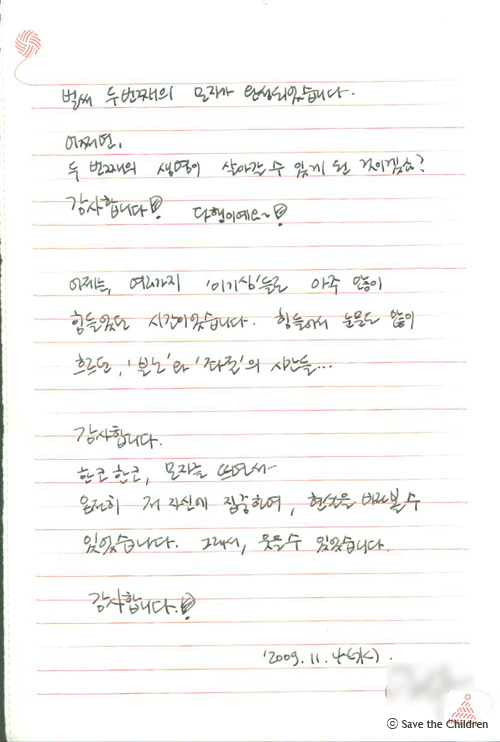 벌써 두번째의 모자가 완성되었습니다.
어쩌면,
두 번째의 생명이 살아갈 수 있게 된 것이겠죠?
감사합니다! 다행이예요~!
어제는, 여러가지 '이기심'들로 아주 많이
힘들었던 시간이었습니다. 힘들어서 눈물도 많이
흐르던, '분노'와 '좌절'의 시간들...
감사합니다.
한코 한코, 모자를 뜨면서~
온전히 저 자신에 집중하여, 현실을 바라볼 수
있었습니다. 그래서, 웃을 수 있었습니다.
감사합니다.!
'2009. 11. 4(水).
© Save the Children